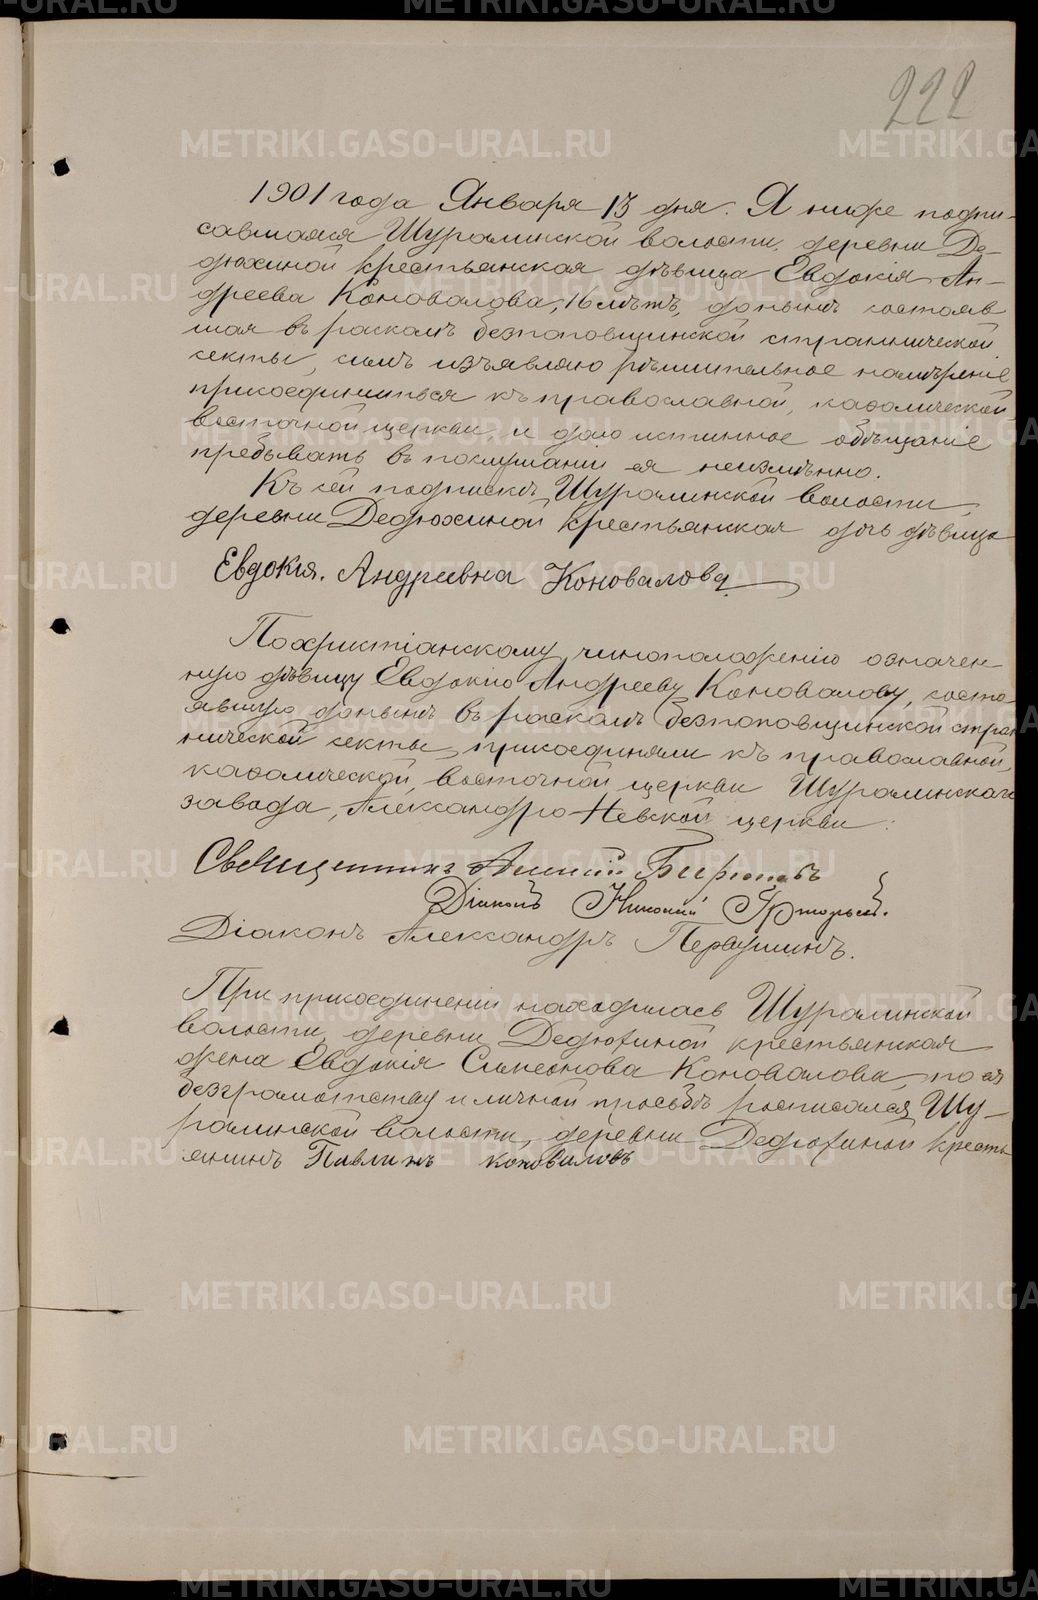 222
1901 года Января 13 дня. Я ниже подпи-
савшаяся Шуралинской волости, деревни Де-
дюхиной крестьянская дѣвица Евдокія Ан-
дреева Коновалова, 16 лѣтъ, донынѣ состояв
шая въ расколѣ безпоповщинской страннической
секты, симъ изъявляю рѣшительное намѣреніе
присоединиться къ православной, каѳолической
восточной церкви, и даю истинное обѣщаніе
пребывать въ послушаніи ея неизмѣнно.
Къ сей подпискѣ Шуралинской волости,
деревни Дедюхиной крестьянская дочь дѣвица
Евдокія. Андреевна Коновалова
По христіанскому чиноположенію означен
ную дѣвицу Евдокію Андрееву Коновалову, состо
явшую донынѣ въ расколѣ безпоповщинской стран
нической секты, присоединяли къ православной,
каѳолической, восточной церкви Шуралинскаго
завода, Александро-Невской церкви:
Священникъ Алексій Бирюковъ
Діаконъ Николай
Діаконъ Александръ Первушинъ.
При присоединеніи находилась Шуралинской
волости, деревни Дедюхиной крестьянская
жена Евдокія Симеонова Коновалова, по ея
безграмотству и личной просьбѣ росписался Шу-
ралинской волости, деревни Дедюхиной кресть
янинъ Павлинъ Коноваловъ
METRIKI.GASO-URAL.RU